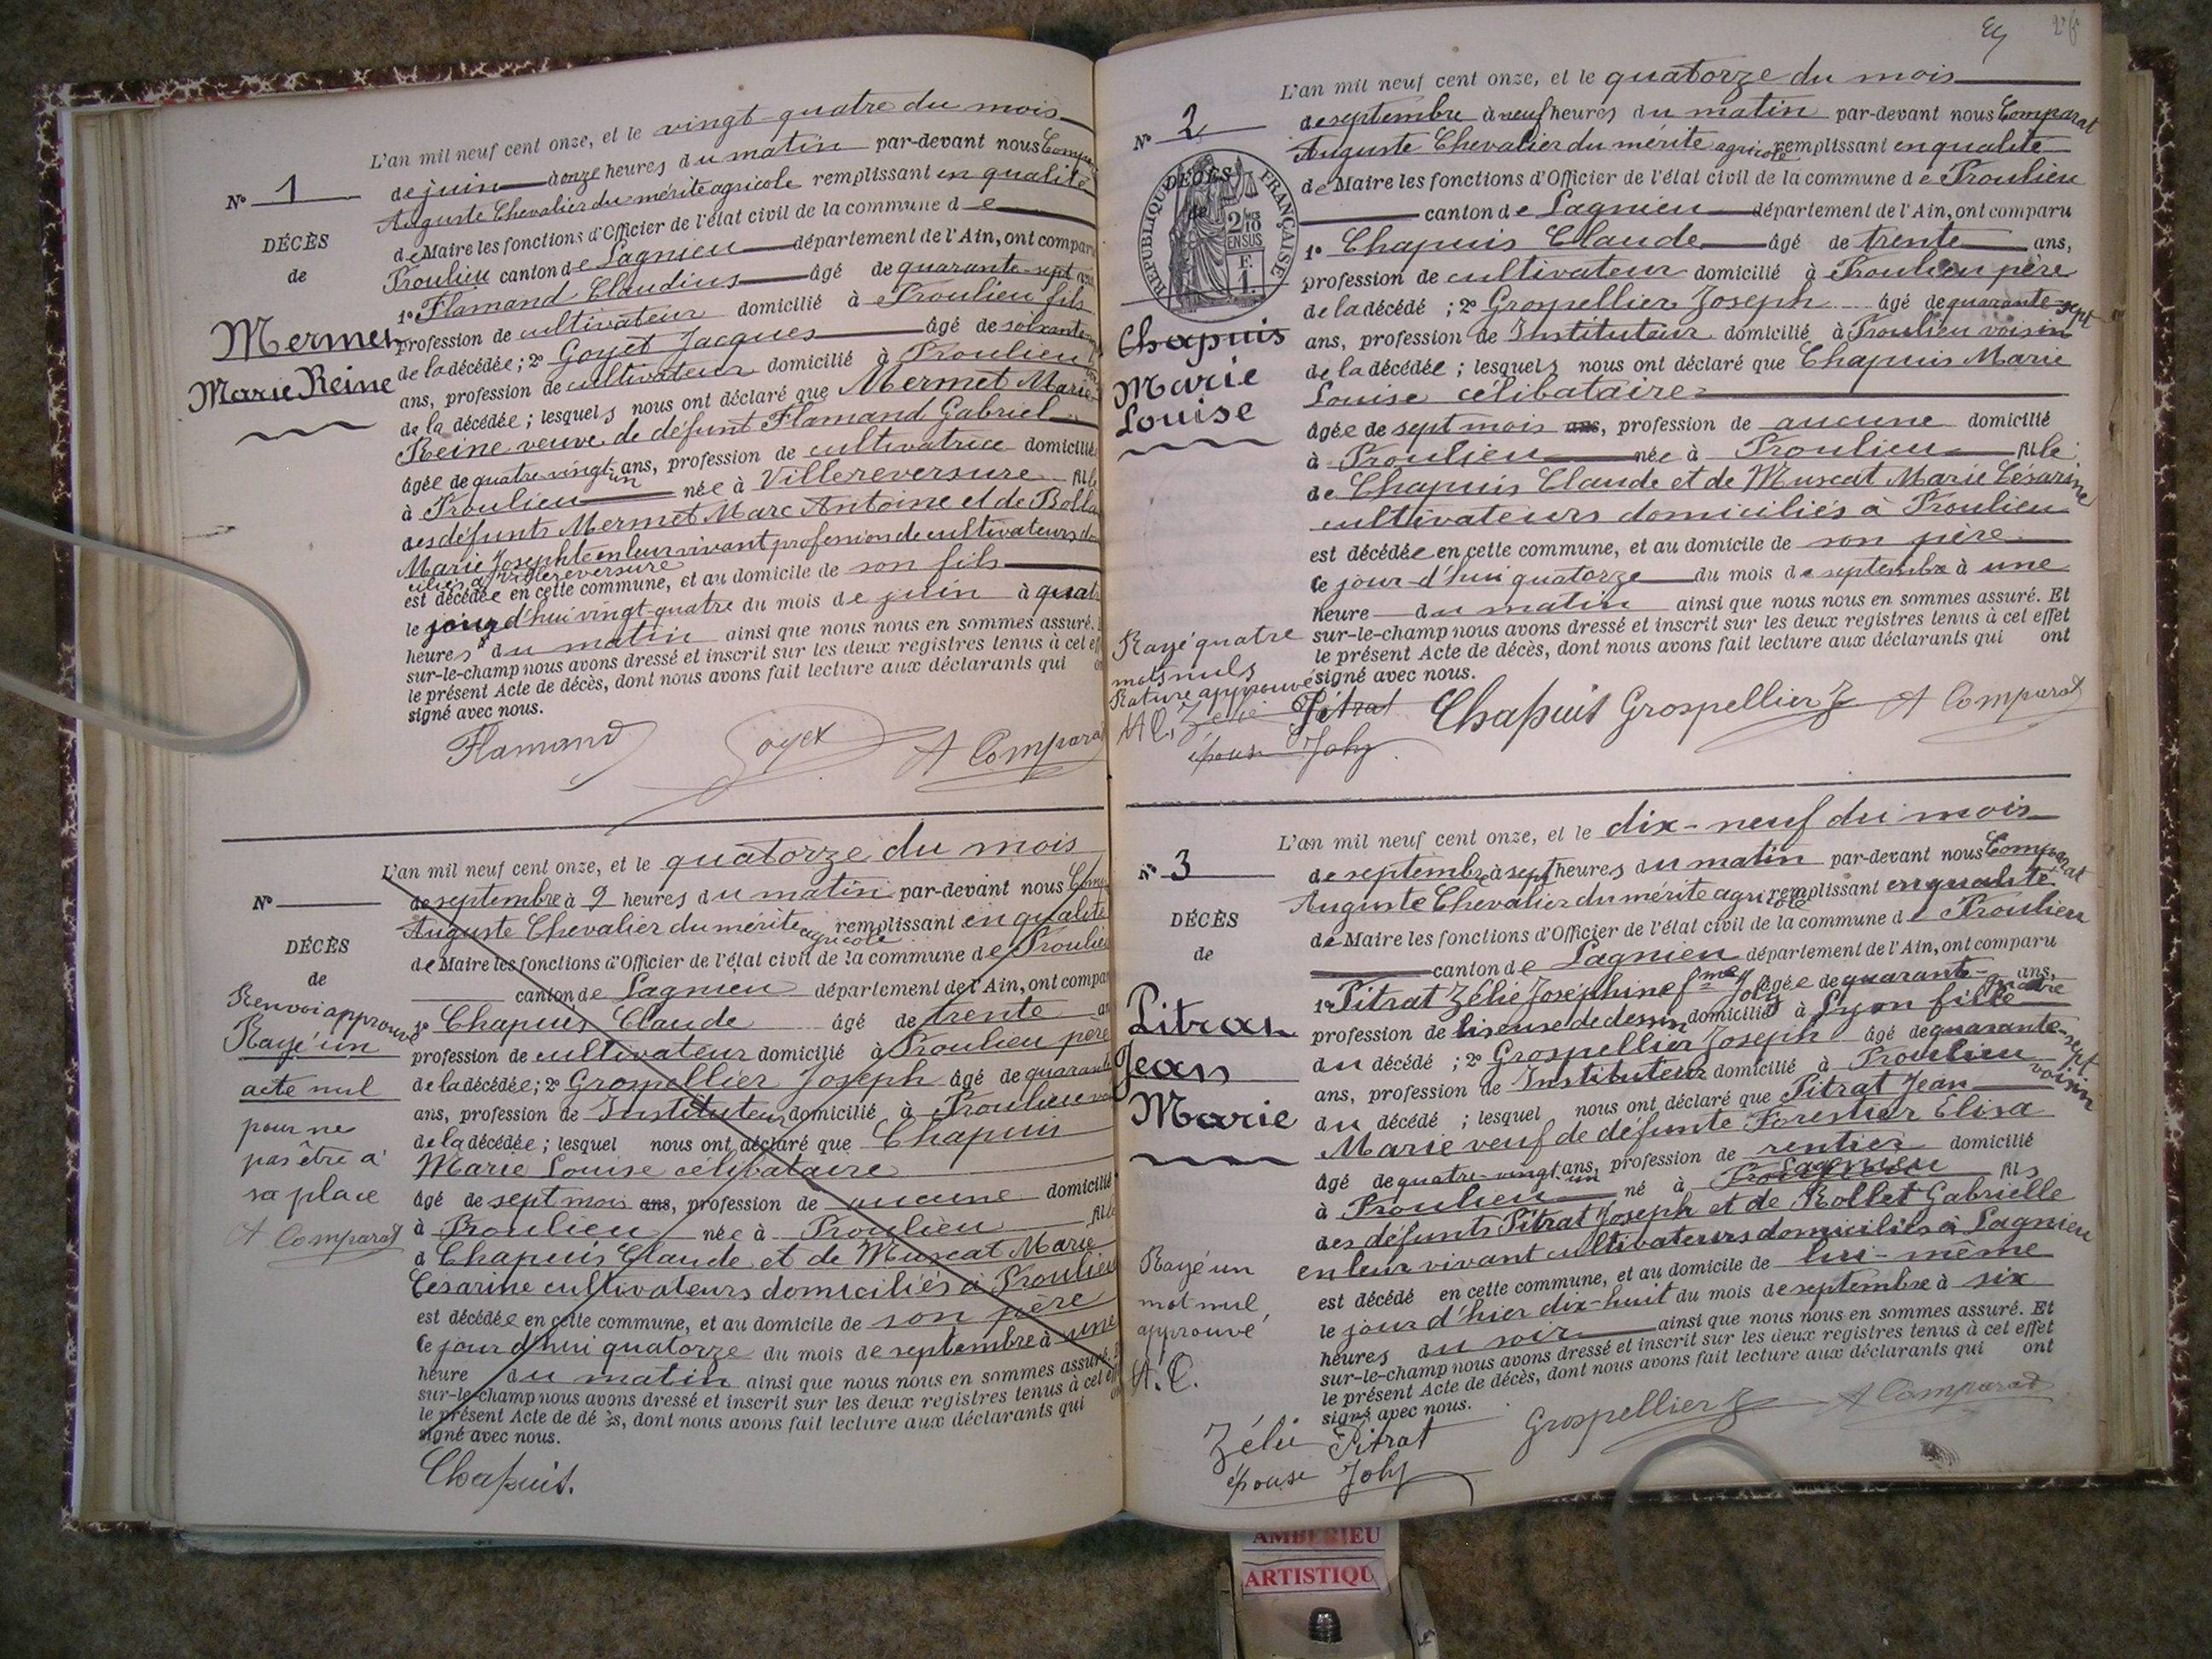 N° 1
DÉCÈS
de
Mermet
Marie Reine
L'an mil neuf cent onze, et le vingt-quatre du mois
de juin à onze heures du matin par-devant nous
Auguste Chevalier du mérite agricole remplissant en qualité
de Maire les fonctions d'Officier de l'état civil de la commune de
Proulieu canton de Lagnieu département de l'Ain, ont comparu
1° Flamand Claudius âgé de quarante-sept ans,
profession de cultivateur domicilié à Proulieu fils
de la décédée; 2° Goyet Jacques âgé de soixante
ans, profession de cultivateur domicilié à Proulieu
de la décédée; lesquels nous ont déclaré que Mermet Marie
Reine veuve de défunt Flamand Gabriel
âgée de quatre-vingt-un ans, profession de cultivatrice domiciliée
à Proulieu née à Villereversure fille
des défunts Mermet Marc Antoine et de
Marie Josephte en leur vivant profession de cultivateurs
à Villereversure
est décédée en cette commune, et au domicile de son fils
le jour d'hui vingt-quatre du mois de juin à
heures du matin ainsi que nous nous en sommes assuré.
sur-le-champ nous avons dressé et inscrit sur les deux registres tenus à cet
le présent Acte de décès, dont nous avons fait lecture aux déclarants qui
signé avec nous.
Flamand Goyet A Comparat
N°
DÉCÈS
de
Renvoi approuvé
Rayé un
acte nul
pour ne
pas être à
sa place
A Comparat
L'an mil neuf cent onze, et le quatorze du mois
de septembre à 9 heures du matin par-devant nous
Auguste Chevalier du mérite agricole remplissant en qualité
de Maire les fonctions d'Officier de l'état civil de la commune de Proulieu
canton de Lagnieu département de l'Ain, ont
1° Chapuis Claude âgé de trente
profession de cultivateur domicilié à Proulieu père
de la décédée; 2° Grospellier Joseph âgé de quarante
ans, profession de Instituteur domicilié à Proulieu
de la décédée; lesquel nous ont déclaré que Chapuis
Marie Louise célibataire
âgé de sept mois ans, profession de aucune domicilié
à Proulieu née à Proulieu fille
d Chapuis Claude et de Muscat Marie
Césarine cultivateurs domiciliés à Proulieu
est décédée en cette commune, et au domicile de son père
le jour d'hui quatorze du mois de septembre à une
heure du matin ainsi que nous nous en sommes assuré.
sur-le-champ nous avons dressé et inscrit sur les deux registres tenus à cet
le présent Acte de décès, dont nous avons fait lecture aux déclarants qui
signé avec nous.
Chapuis.
N° 2
DÉCÈS
de
RÉPUBLIQUE FRANÇAISE
2/10 EN SUS
F. 1.
Chapuis
Marie
Louise
Rayé quatre
mots nuls
Rature approuvé
A C,
L'an mil neuf cent onze, et le quatorze du mois
de septembre à neuf heures du matin par-devant nous Comparat
Auguste Chevalier du mérite agricole remplissant en qualité
de Maire les fonctions d'Officier de l'état civil de la commune de Proulieu
canton de Lagnieu département de l'Ain, ont comparu
1° Chapuis Claude âgé de trente ans,
profession de cultivateur domicilié à Proulieu père
de la décédé; 2° Grospellier Joseph âgé de quarante-sept
ans, profession de Instituteur domicilié à Proulieu voisin
de la décédée; lesquels nous ont déclaré que Chapuis Marie
Louise célibataire
âgée de sept mois ans, profession de aucune domicilié
à Proulieu née à Proulieu fille
de Chapuis Claude et de Muscat Marie Césarine
cultivateurs domiciliés à Proulieu
est décédée en cette commune, et au domicile de son père
le jour-d'hui quatorze du mois de septembre à une
heure du matin ainsi que nous nous en sommes assuré. Et
sur-le-champ nous avons dressé et inscrit sur les deux registres tenus à cet effet
le présent Acte de décès, dont nous avons fait lecture aux déclarants qui ont
signé avec nous.
Zélie Pitrat Chapuis Grospellier J A Comparat
épouse Joly
N° 3
DÉCÈS
de
Pitrat
Jean
Marie
Rayé un
mot nul,
approuvé
A. C.
L'an mil neuf cent onze, et le dix-neuf du mois
de septembre à sept heures du matin par-devant nous Comparat
Auguste Chevalier du mérite agricole remplissant en qualité
de Maire les fonctions d'Officier de l'état civil de la commune de Proulieu
canton de Lagnieu département de l'Ain, ont comparu
1° Pitrat Zélie Josephine fme Joly âgée de quarante-quatre ans,
profession de liseuse de dessin domicilié à Lyon fille
du décédé; 2° Grospellier Joseph âgé de quarante-sept
ans, profession de Instituteur domicilié à Proulieu voisin
du décédé; lesquel nous ont déclaré que Pitrat Jean
Marie veuf de défunte Forestier Elisa
âgé de quatre-vingt-un ans, profession de rentier domicilié
à Proulieu né à Lagnieu fils
des défunts Pitrat Joseph et de Rollet Gabrielle
en leur vivant cultivateurs domiciliés à Lagnieu
est décédé en cette commune, et au domicile de lui-même
le jour d'hier dix-huit du mois de septembre à six
heures du soir ainsi que nous nous en sommes assuré. Et
sur-le-champ nous avons dressé et inscrit sur les deux registres tenus à cet effet
le présent Acte de décès, dont nous avons fait lecture aux déclarants qui ont
signé avec nous.
Zélie Pitrat Grospellier J A Comparat
épouse Joly
AMBERIEU
ARTISTIQU